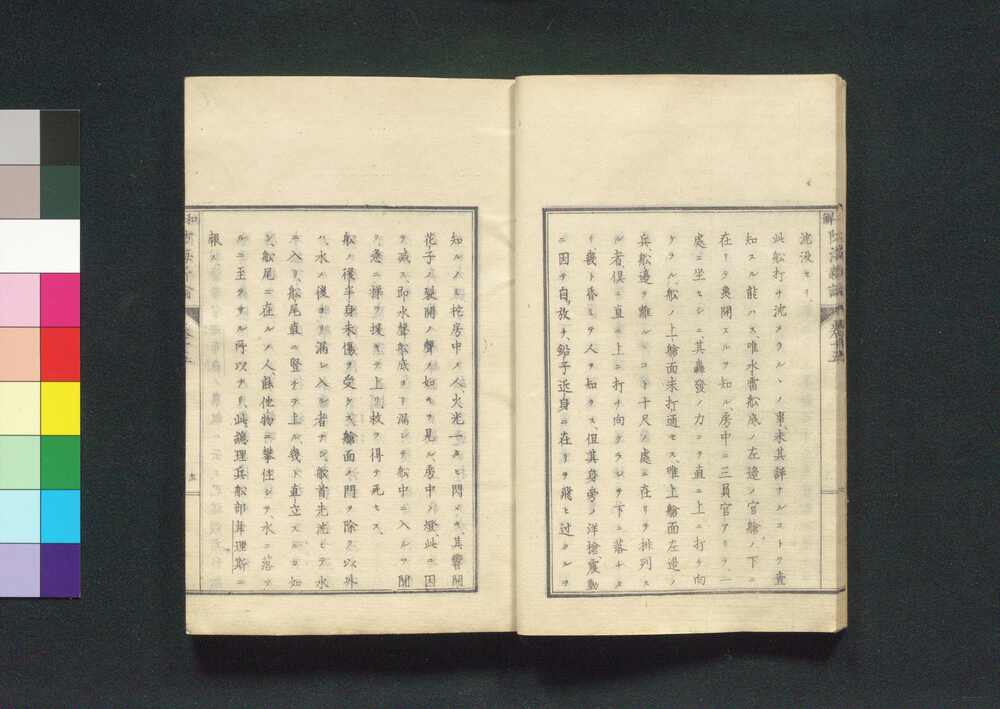 沈没セリ、
此船打チ沈メラルヽノ事、未其詳ナルコトヲ査
知スル能ハス、唯水雷船底ノ左邊ノ官艙ノ下ニ
在リテ轟開スルヲ知ル、房中ニ三員官アリテ、一
處ニ坐セシニ、其轟發ノ力ニテ直ニ上ニ打チ向
ケラル、船ノ上艙面未打通セス、唯上艙面左邊ノ
兵、船邊ヲ離ルヽコト十尺ノ處ニ在リテ排列ス
ル者、俱ニ直ニ上ニ打チ向ケラレテ下ニ落チ、
幾ト昏シテ人ヲ知ラス、但其身旁ノ洋槍、震動
ニ因テ自放チ、鉛子近身ニ在リテ飛ヒ过クルヲ
知ルノミ、柁房中ノ人、火光一タヒ閃メキ、其響開
花子ノ裂開ノ聲ノ如キヲ見、房中ノ燈、此ニ因
テ滅ス、即水聲船底ヨリ漏レテ船中ニ入ルヲ聞
ク、
船ノ後半身未傷ヲ受ケス、艙面ノ門ヲ除ク以外
ハ、水ノ後ヨリ漏レ入ル者ナシ、船首先沈ミテ水
ニ入リ、船尾直ニ竪チテ上ル、幾ト直立スルカ如
シ、船尾ニ在ルノ人、餘他物ニ攀住シテ、水ニ落ツ
ルニ至ラサル所以ナリ、此讓理兵船部韋理斯ニ
報ス、